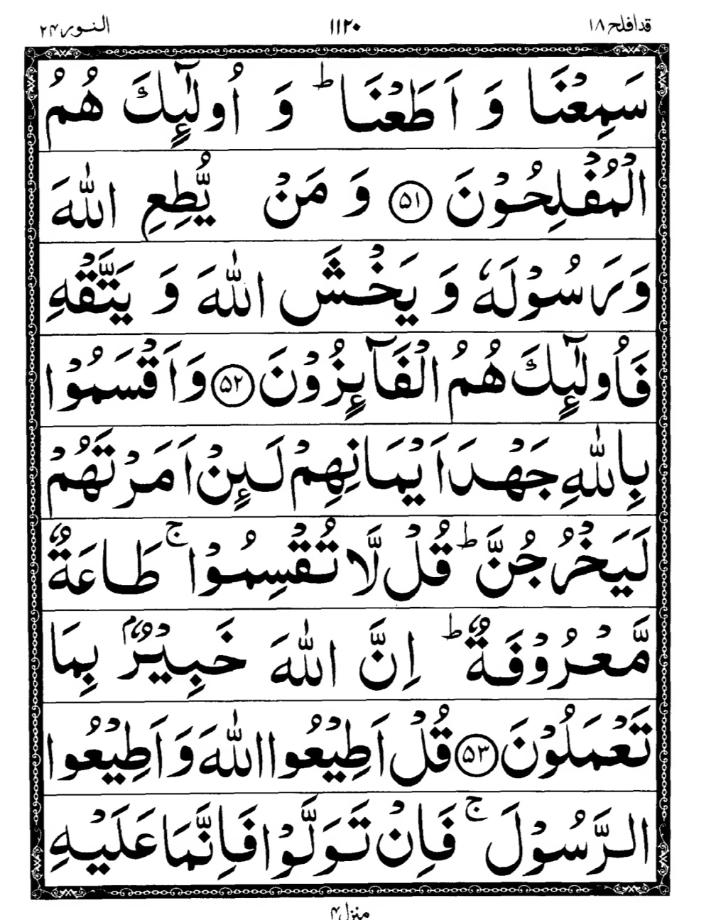 قدافلح ۱۸
۱۱۲۰
النور ۲۴
سَمِعْنَا وَ اَطَعْنَا ؕ وَ اُولٰٓئِكَ هُمُ
الْمُفْلِحُوْنَ ﴿۵۱﴾ وَ مَنْ یُّطِعِ اللّٰهَ
وَرَسُوْلَهٗ وَ یَخْشَ اللّٰهَ وَ یَتَّقْهِ
فَاُولٰٓئِكَ هُمُ الْفَآئِزُوْنَ ﴿۵۲﴾ وَاَقْسَمُوْا
بِاللّٰهِ جَهْدَ اَیْمَانِهِمْ لَئِنْ اَمَرْتَهُمْ
لَیَخْرُجُنَّ ؕ قُلْ لَّا تُقْسِمُوْا ۚ طَاعَةٌ
مَّعْرُوْفَةٌ ؕ اِنَّ اللّٰهَ خَبِیْرٌۢ بِمَا
تَعْمَلُوْنَ ﴿۵۳﴾ قُلْ اَطِیْعُوا اللّٰهَ وَاَطِیْعُوا
الرَّسُوْلَ ۚ فَاِنْ تَوَلَّوْا فَاِنَّمَا عَلَیْهِ
منزل ۴